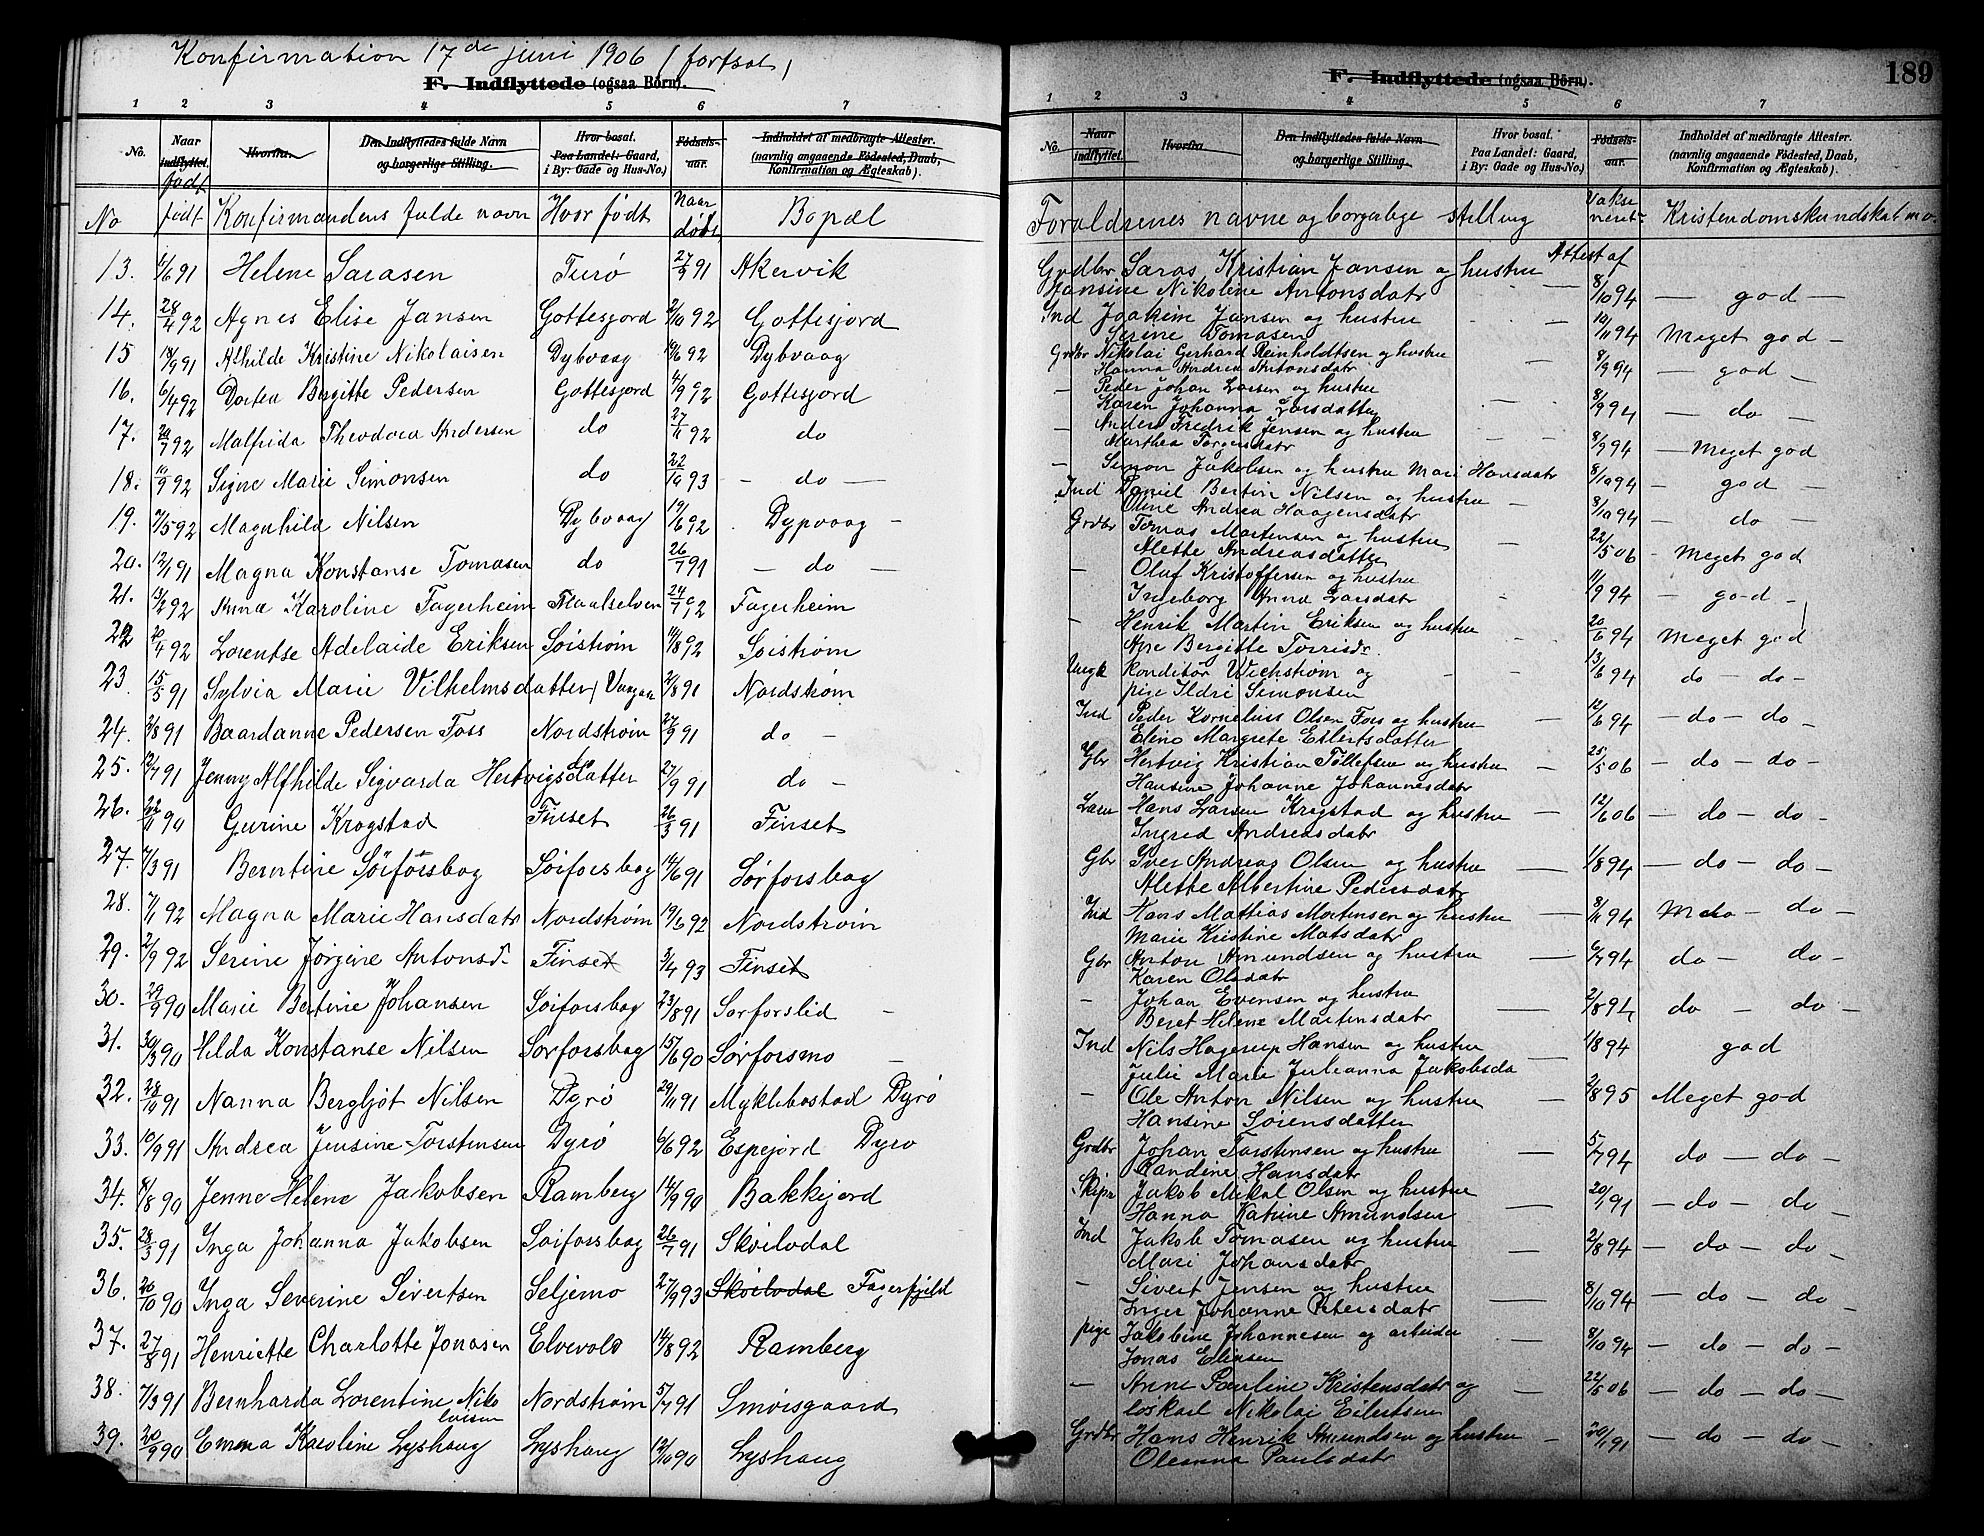 Konfirmation 17de juni 1906 (fortsat)
F. Indflyttede (ogsaa Børn).
1 2 3 4 5 6 7
No. Naar indflyttet. Hvorfra. Den Indflyttedes fulde Navn og borgerlige Stilling. Hvor bosat. Paa Landet: Gaard, i By: Gade og Hus-No.) Fødsels-aar. Indholdet af medbragte Attester. (navnlig angaaende Fødested, Daab, Konfirmation og Ægteskab).
født
No født Konfirmandens fulde navn Hvor født Naar døbt Bopæl
13. 4/6 91 Helene Sarasen Turø 27/9 91 Akervik
14. 28/4 92 Agnes Elise Jansen Gottesjord 2/10 92 Gottesjord
15 18/9 91 Alhilde Kristine Nikolaisen Dybvaag 19/6 92 Dybvaag
16. 6/4 92 Dortea Birgitte Pedersen Gottesjord 4/9 92 Gottesjord
17. 29/7 92 Malfrida Theodora Andersen do 27/11 92 do
18. 10/9 92 Signe Marie Simonsen do 22/10 93 - do -
19. 7/5 92 Magnhild Nilsen Dybvaag 19/6 92 Dypvaag -
20. 12/1 91 Magna Konstanse Tomasen do 26/7 91 - do -
21. 13/2 92 Anna Karoline Fagerheim Maalselven 24/7 92 Fagerheim
22 20/4 92 Lorentse Adelaide Eriksen Soistrøm 14/8 92 Soistrøm
23. 15/5 91 Sylvia Marie Vilhelmsdatter Vangen 2/8 91 Nordstrøm
24. 2/8 91 Baardanne Pedersen Foss Nordstrøm 27/9 91 do -
25. 12/7 91 Jenny Alfhilde Sigvarda Hertvigsdatter do 27/9 91 do -
26. 22/11 90 Gurine Krogstad Finset 26/3 91 Finset
27. 7/3 91 Berntine Sørforsbog Soiforsbog 14/6 91 Sørforsbog
28. 7/1 92 Magna Marie Hansdatr Nordstrøm 19/6 92 Nordstrøm
29. 2/9 92 Serine Jørgine Antonsd. Finset 3/4 93 Finset
30. 29/9 90 Marie Bertine Johansen Soiforsbog 23/8 91 Sorforslid -
31. 30/3 90 Hilda Konstanse Nilsen Sorforsbog 15/6 90 Sørforsmo -
32. 28/10 91 Nanna Bergljot Nilsen Dyrø 29/11 91 Myklebostad Dyrø
33. 10/9 91 Andrea Jensine Torstensen Dyrø 6/6 92 Espejord Dyrø
34. 8/8 90 Jenne Helene Jakobsen Ramberg 14/9 90 Bakkejord
35. 28/3 91 Inga Johanna Jakobsen Soiforsbog 26/7 91 Skoilvdal
36. 20/10 90 Inga Severine Sivertsen Seljemo 27/9 93 Skoilvdal Fagerfjeld
37. 27/8 91 Henriette Charlotte Jonasen Elvevold 14/8 92 Ramberg
38. 7/3 91 Bernharda Lorentine Nikolaisen Nordstrøm 5/7 91 Smoisgaard
39. 20/9 90 Emma Karoline Lyshaug Lyshaug 12/10 90 Lyshaug
F. Indflyttede (ogsaa Børn). 189
1 2 3 4 5 6 7
No. Naar indflyttet. Hvorfra Den Indflyttedes fulde Navn og borgerlige Stilling. Hvor bosat. Paa Landet: Gaard, i By: Gade og Hus-No.) Fødsels-aar. Indholdet af medbragte Attester. (navnlig angaaende Fødested, Daab, Konfirmation og Ægteskab).
Forældrenes navne og borgerlige stilling Vaksineret Kristendomskundskab m.v.
Grdbr Saras Kristian Jansen og hustru Attest af
Hansine Nikoline Antonsdatr 8/10 94 - god -
Ind Joakim Jansen og hustru 10/11 94 Meget god -
Serine Tomasen
Grdbr Nikolai Gerhard Reinholdtsen og hustru 8/9 94 - god -
Hanna Andrea Antonsdatr
- Peder Johan Larsen og hustru 8/9 94 - do -
Karen Johanna Larsdatter
- Anders Fredrik Jensen og hustru 8/9 94 - Meget god
Marthea Torgersdatr
- Simon Jakobsen og hustru Mari Hansdatr 8/10 94 - god -
Ind Daniel Bertin Nilsen og hustru 8/10 94 - do -
Oline Andrea Haagensdatr
Grdbr Tomas Martensen og hustru 22/5 06 - Meget god
Alette Andreasdatter
- Oluf Kristoffersen og hustru 11/9 94 - god -
Ingeborg Anna Larsdatr
- Henrik Martin Eriksen og hustru 20/6 94 Meget god
Ane Bergitte Torrisdr.
Ungk Konditor Wichstrøm og 13/6 94 do - do -
pige Ildri Simonsen
Ind Peder Kornelius Olsen Foss og hustru 12/6 94 - do - do -
Eline Margrete Eilertsdatter
Gbr Hertvig Kristian Tollefsen og hustru 25/5 06 - do - do -
Hansine Johanne Johannesdatr
Hans Larsen Krogstad og hustru 12/6 06 - do - do -
Ingrid Andreasdatr
Gbr Iver Andreas Olsen og hustru 1/8 94 - do - do -
Alette Albertine Pedersdatr
Ind Hans Mattias Mortensen og hustru 8/11 94 do - do -
Marie Kristine Matsdatr
Gbr Anton Amundsen og hustru 6/7 94 do - do -
Karen Olsdatr
- Johan Evensen og hustru 2/8 94 do - do -
Beret Helene Martinsdatr
Ind Nils Hagerup Hansen og hustru 1/8 94 god
Julie Marie Julianna Jakobsda
- Ole Anton Nilsen og hustru 2/8 95 Meget god
Hansine Sørensdatter
Grdbr Johan Torstensen og hustru 5/7 94 do - do -
Randine Hansdatr
Skipr Jakob Mikal Olsen og hustru 20/1 91 - do - do -
Hanna Katrine Amundsen
Ind Jakob Tomasen og hustru 2/8 94 - do - do -
Mari Johansdatr
- Sivert Jensen og hustru 8/10 94 - do - do -
Inger Johanne Petersdatr
pige Jakobine Johannesen og arbeider 8/10 94 - do - do -
Jonas Eliasen
- Anne Pauline Kristensdatr og 22/5 06 - do - do -
løskarl Nikolai Eilertsen
Grdbr Hans Henrik Amundsen og hustru 20/1 91 - do - do -
Oleanna Paulsdatr